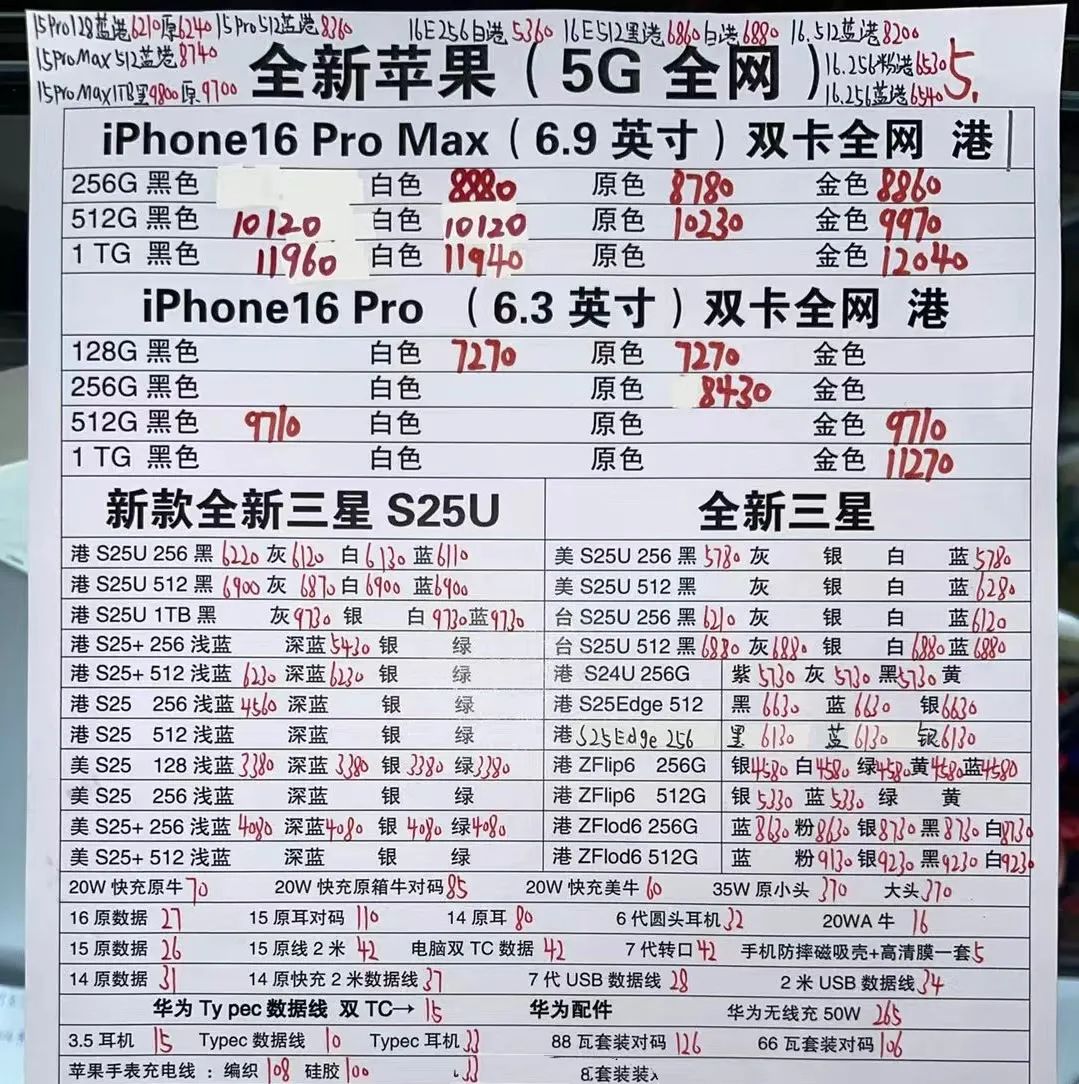 15Pro128蓝港6210原6240 15Pro512蓝港8360 16E256白港5360 16E512黑港6860白港6880 16.512蓝港8200
15ProMax512蓝港8740
15ProMax1TB黑9800原9700
全新苹果（5G 全网）
16.256粉港6530
16.256蓝港6540
5.
iPhone16 Pro Max（6.9 英寸）双卡全网 港
256G 黑色 白色 8880 原色 8780 金色 8860
512G 黑色 10120 白色 10120 原色 10230 金色 9970
1 TG 黑色 11960 白色 11940 原色 金色 12040
iPhone16 Pro （6.3 英寸）双卡全网 港
128G 黑色 白色 7270 原色 7270 金色
256G 黑色 白色 原色 8430 金色
512G 黑色 9710 白色 原色 金色 9710
1 TG 黑色 白色 原色 金色 11270
新款全新三星 S25U
港 S25U 256 黑 6220 灰 6120 白 6130 蓝 6110
港 S25U 512 黑 6900 灰 6870 白 6900 蓝 6900
港 S25U 1TB 黑 灰 9730 银 白 9730 蓝 9730
港 S25+ 256 浅蓝 深蓝 5430 银 绿
港 S25+ 512 浅蓝 6230 深蓝 6230 银 绿
港 S25 256 浅蓝 4560 深蓝 银 绿
港 S25 512 浅蓝 深蓝 银 绿
美 S25 128 浅蓝 3380 深蓝 3380 银 3380 绿 3380
美 S25 256 浅蓝 深蓝 银 绿
美 S25+ 256 浅蓝 4080 深蓝 4080 银 4080 绿 4080
美 S25+ 512 浅蓝 深蓝 银 绿
全新三星
美 S25U 256 黑 5780 灰 银 白 蓝 5780
美 S25U 512 黑 灰 银 白 蓝 6280
台 S25U 256 黑 6210 灰 银 白 蓝 6120
台 S25U 512 黑 6880 灰 6880 银 白 6880 蓝 6880
港 S24U 256G 紫 5730 灰 5730 黑 5730 黄
港 S25Edge 512 黑 6630 蓝 6630 银 6630
港 S25Edge 256 黑 6130 蓝 6130 银 6130
港 ZFlip6 256G 银 4580 白 4580 绿 4580 黄 4580 蓝 4580
港 ZFlip6 512G 银 5330 蓝 5330 绿 黄
港 ZFlod6 256G 蓝 8630 粉 8630 银 8730 黑 8730 白 8730
港 ZFlod6 512G 蓝 粉 9130 银 9230 黑 9230 白 9230
20W 快充原牛 70 20W 快充原箱牛对码 85 20W 快充美牛 60 35W 原小头 370 大头 370
16 原数据 27 15 原耳对码 110 14 原耳 80 6 代圆头耳机 32 20WA 牛 16
15 原数据 26 15 原线 2 米 42 电脑双 TC 数据 42 7 代转口 42 手机防摔磁吸壳+高清膜一套 5
14 原数据 31 14 原快充 2 米数据线 37 7 代 USB 数据线 28 2 米 USB 数据线 34
华为 Ty pec 数据线 双 TC→ 15 华为配件 华为无线充 50W 265
3.5 耳机 15 Typec 数据线 10 Typec 耳机 33 88 瓦套装对码 126 66 瓦套装对码 106
苹果手表充电线 ：编织 108 硅胶 100 33